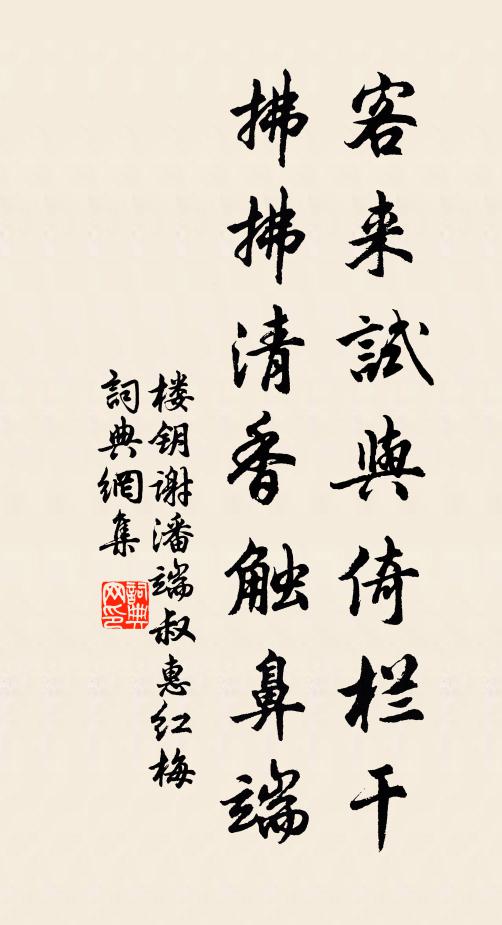 客来試與倚栏干
拂拂清香触鼻端
楼钥谢潘端叔惠红梅
詞典網集
詞典网印